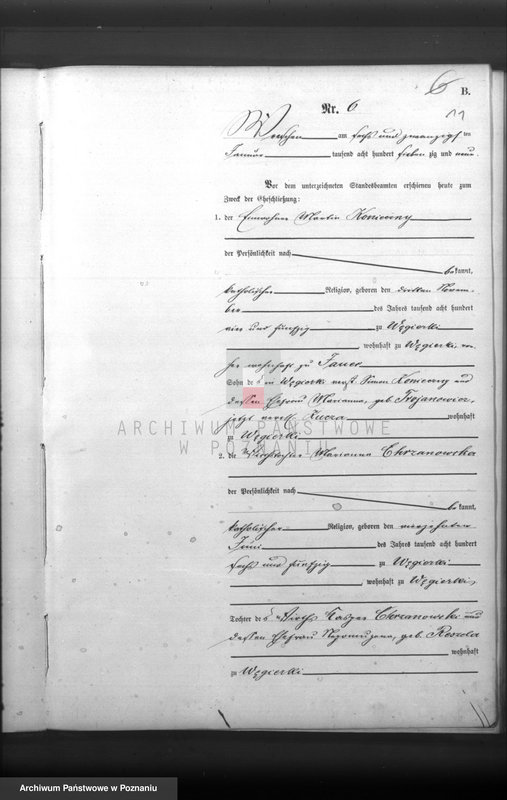 6 B.
Nr. 6
11
Wreschen am sechs und zwanzigsten
Januar tausend acht hundert sieben zig und neun.
Vor dem unterzeichneten Standesbeamten erschienen heute zum
Zweck der Eheschließung:
1. der Einwohner Martin Konieczny
der Persönlichkeit nach
bekannt,
katholischer Religion, geboren den dritten Novem-
ber des Jahres tausend acht hundert
vier und fünfzig zu Węgierki
, wohnhaft zu Węgierki vor-
her wohnhaft zu
Sohn des in Węgierki Simon Konieczny und
dessen Ehefrau Marianna, geb. Trojanowicz,
jetzt wohnhaft
ARCHIWUM PAŃSTWOWE
W POZNANIU
zu Węgierki
2. die Marianna Chrzanowska
der Persönlichkeit nach
bekannt,
katholischer Religion, geboren den vierzehnten
Juni des Jahres tausend acht hundert
sechs und fünfzig zu Węgierki
, wohnhaft zu Węgierki,
Tochter des Wirths Kasper Chrzanowski und
dessen Ehefrau Nepomuzena, geb.
wohnhaft
zu Węgierki
Archiwum Państwowe w Poznaniu